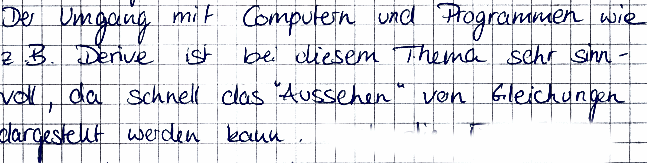 Der Umgang mit Computern und Programmen wie
z.B. Derive ist bei diesem Thema sehr sinn-
voll, da schnell das "Aussehen" von Gleichungen
dargestellt werden kann.